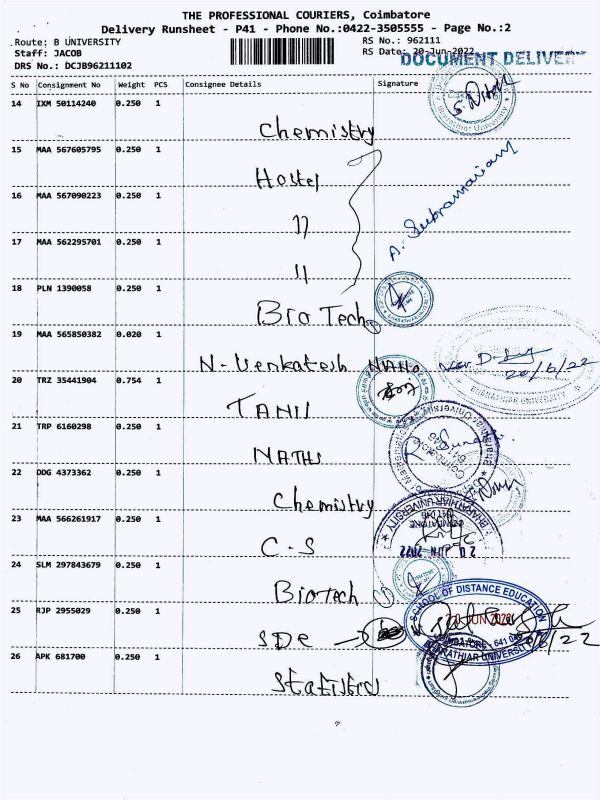 THE PROFESSIONAL COURIERS, Coimbatore
Delivery Runsheet - P41 - Phone No.:0422-3505555 - Page No.:2
Route: B UNIVERSITY
RS No.: 962111
Staff: JACOB
RS Date: 20-Jun-2022
DOCUMENT DELIVERY
DRS No.: DCJB96211102
S No Consignment No Weight PCS Consignee Details Signature
14 IXM 50114240 0.250 1
Chemistry
15 MAA 567605795 0.250 1
Hostel
16 MAA 567090223 0.250 1
"
A. Subramaniam
17 MAA 562295701 0.250 1
"
18 PLN 1390058 0.250 1
Bio Tech
19 MAA 565850382 0.020 1
N. Venkatesh
20/6/22
BHARATHIAR UNIVERSITY
20 TRZ 35441904 0.754 1
TAMIL
21 TRP 6160298 0.250 1
MATHS
22 DDG 4373362 0.250 1
Chemistry
23 MAA 566261917 0.250 1
C.S
BHARATHIAR UNIVERSITY
20 JUN 2022
24 SLM 297843679 0.250 1
BioTech
25 RJP 2955029 0.250 1
SDE
SCHOOL OF DISTANCE EDUCATION
20 JUN 2022
COIMBATORE - 641 046
BHARATHIAR UNIVERSITY
20/6/22
26 APK 681700 0.250 1
Statistics